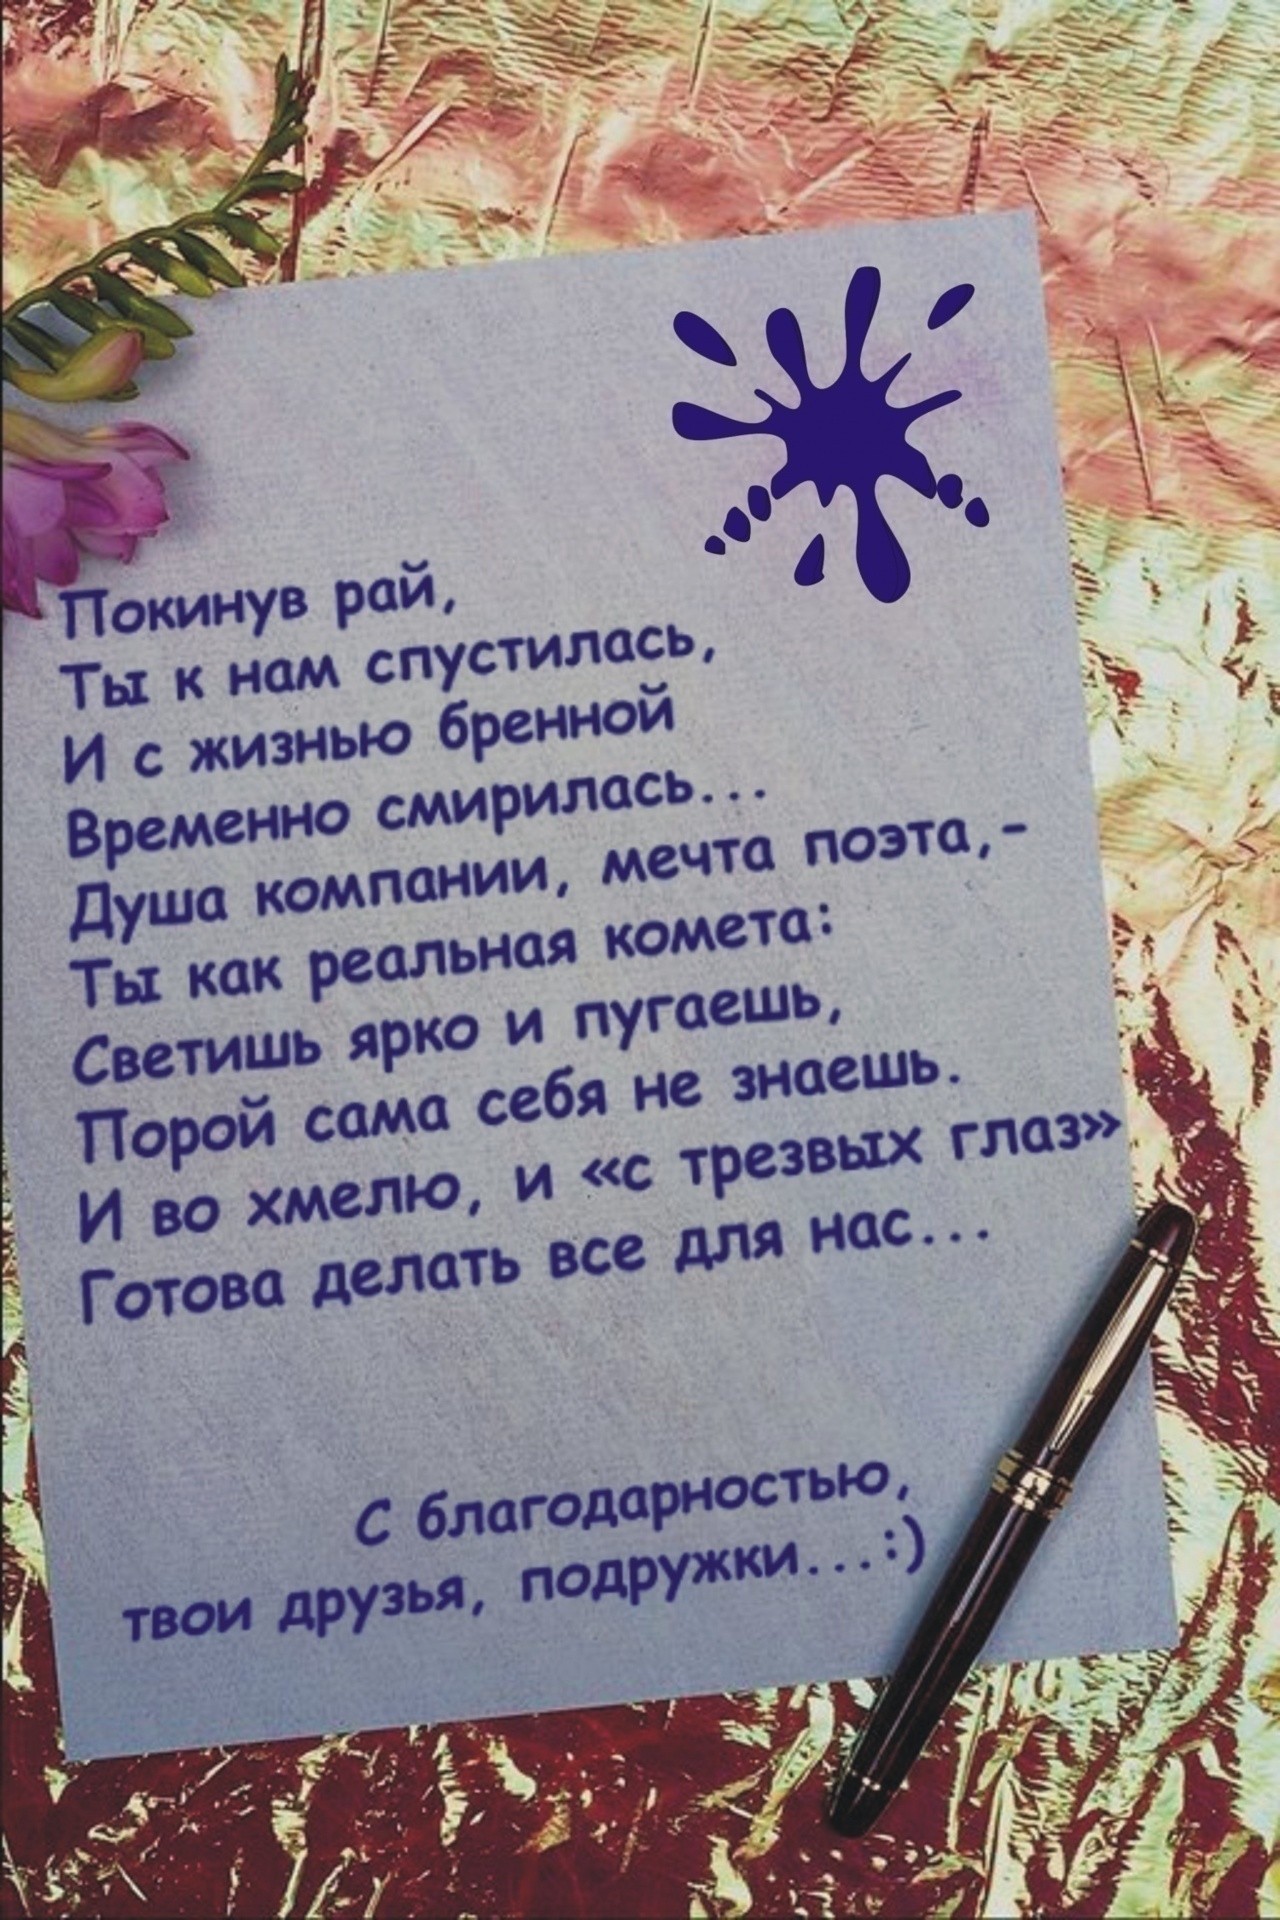 Покинув рай,
Ты к нам спустилась,
И с жизнью бренной
Временно смирилась...
Душа компании, мечта поэта,-
Ты как реальная комета:
Светишь ярко и пугаешь,
Порой сама себя не знаешь.
И во хмелю, и «с трезвых глаз»
Готова делать все для нас...
С благодарностью,
твои друзья, подружки...:)